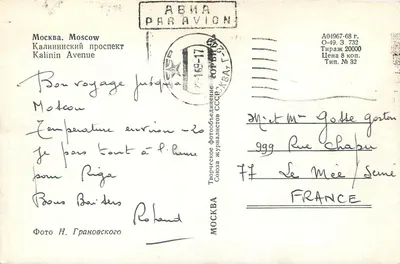 АВИА
PAR AVION
Москва. Moscow
Калининский проспект
Kalinin Avenue
А01967-68 г.
О-49. З. 732
Тираж 20000
Цена 8 коп.
Тип. № 32
Bon voyage jusqu'a
Moscou
Température environ -20
Je pars tout à l'heure
pour Riga
Bons Baisers
Roland
Фото Н. Грановского
МОСКВА
Творческое фотообъединение
Союза журналистов СССР
Mr et Mme Gosse gaston
999 Rue Chapu
77 Le Mée / Seine
FRANCE